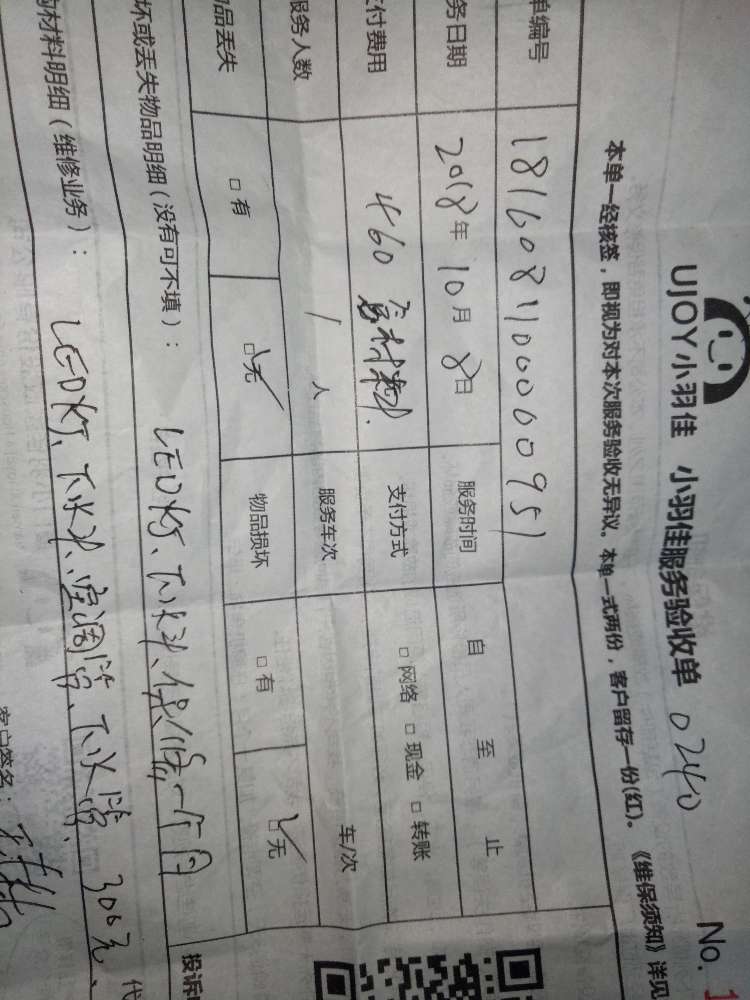 UJOY小羽佳 小羽佳服务验收单 0240 No. 1
本单一经核签，即视为对本次服务验收无异议。本单一式两份，客户留存一份(红)。《维保须知》详见
单编号 181608110000951
务日期 2018年10月8日 服务时间 自 至 止
付费用 460 含材料 支付方式 □网络 □现金 □转账
服务人数 1 人 服务车次 车/次
物品丢失 □有 □无 物品损坏 □有 □无
坏或丢失物品明细（没有可不填）： LED灯、下水、保修一个月
投诉
材料明细（维修业务）： LED灯、下水、空调管、下水管 300元、代
客户签名：